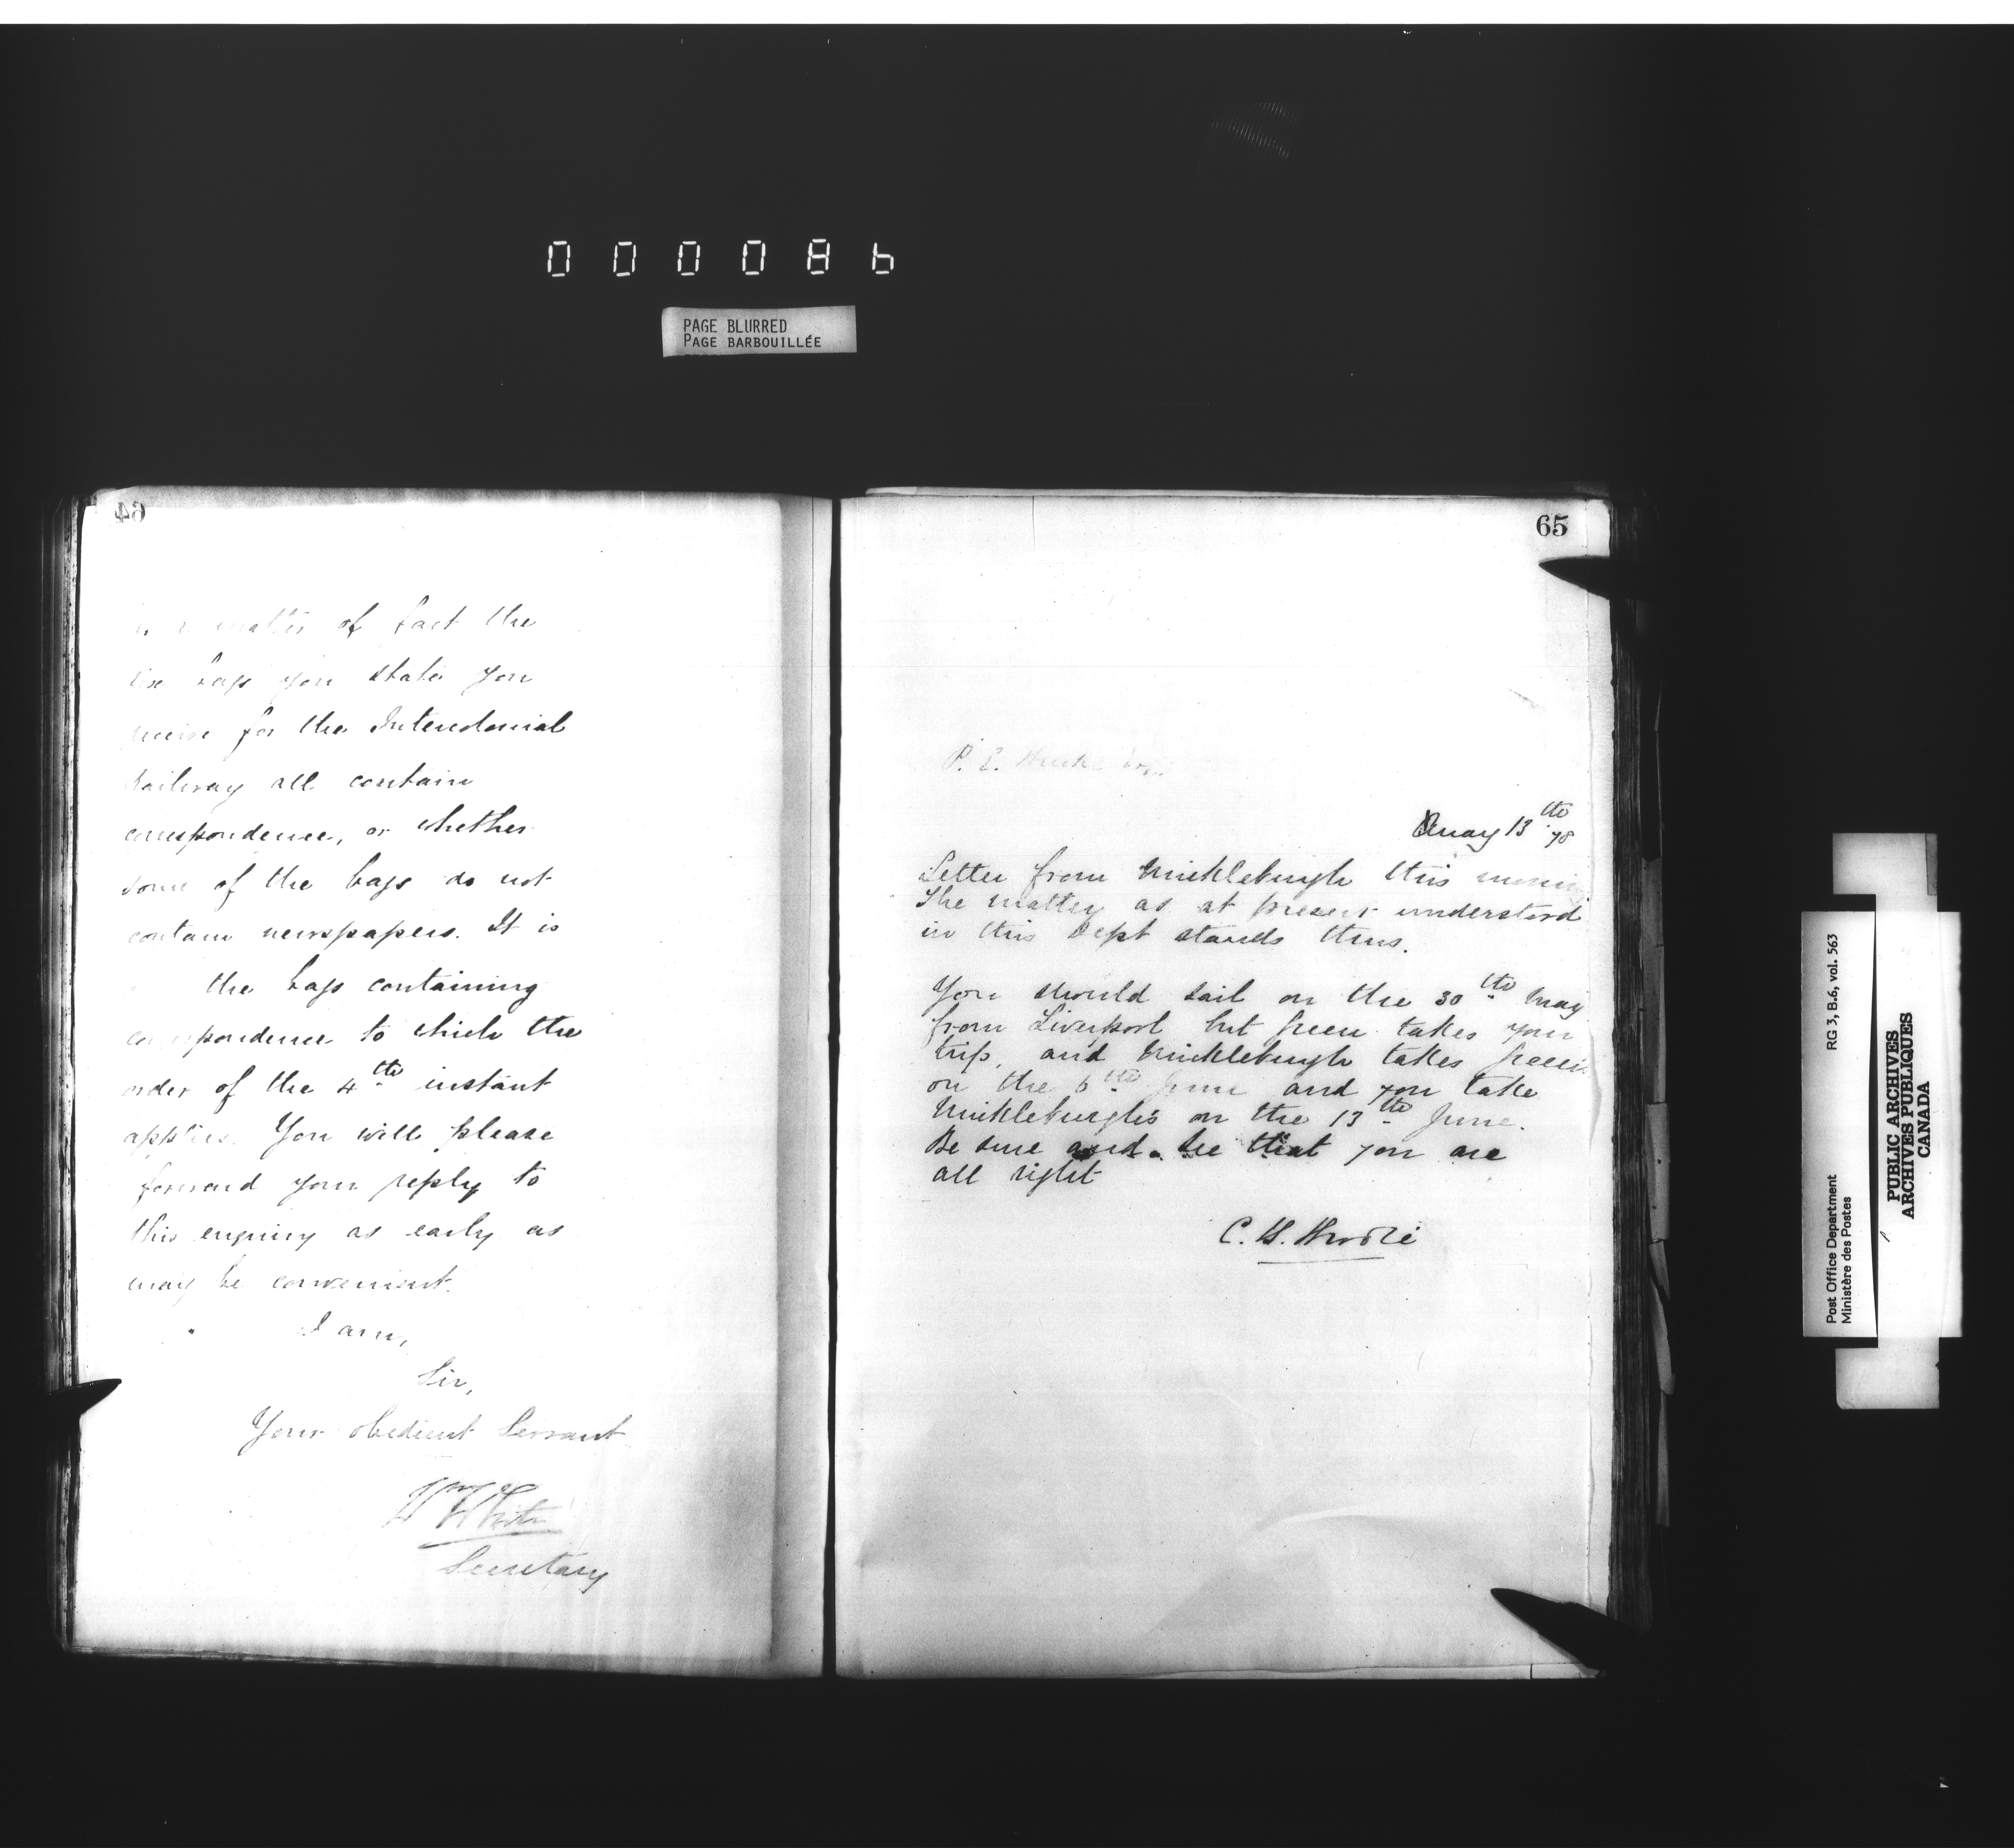 000086
PAGE BLURRED
PAGE BARBOUILLÉE
64
matter of fact the
bags you state you
receive for the Intercolonial
Railway all contain
correspondence, or whether
some of the bags do not
contain newspapers. It is
the bags containing
correspondence to which the
order of the 4th instant
applies. You will please
forward your reply to
this enquiry as early as
may be convenient.
I am,
Sir,
Your obedient Servant
Wm White
Secretary
65
P. E.
May 13th 78
Letter from Mickleburgh this
The matter as at present understood
in this Dept stands thus.
You should sail on the 30th May
from Liverpool but Green takes your
trip, and Mickleburgh takes Green's
on the 6th June and you take
Mickleburgh's on the 13th June.
Be sure and see that you are
all right
C. H.
Post Office Department
Ministère des Postes
RG 3, B.6, vol. 563
PUBLIC ARCHIVES
ARCHIVES PUBLIQUES
CANADA